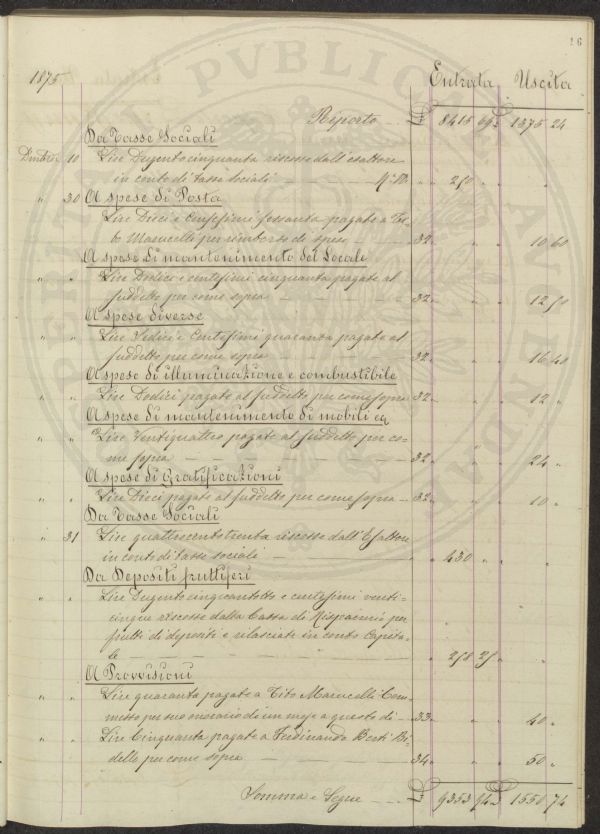 26
1875 Entrata Uscita
Riporto £ 8415 69 £ 1375 24
Da Tasse Sociali
Dmbre 10 Lire Dugentocinquanta riscosse dall'esattore
in conto di tasse sociali 250 " " "
" 30 A spese di Posta
Lire Dieci e Centesimi sessanta pagate a Ti-
to Marucelli per rimborso di spese 32 " " 10 60
A spese di mantenimento del Locale
" " Lire Dodici e centesimi cinquanta pagate al
suddetto per come sopra 32 " " 12 50
A spese diverse
" " Lire Sedici e Centesimi quaranta pagate al
suddetto per come sopra 32 " " 16 40
A spese di illuminazione e combustibile
" " Lire Dodici pagate al suddetto per come sopra 32 " " 12 "
A spese di mantenimento di mobili
" " Lire Ventiquattro pagate al suddetto per co-
me sopra 32 " " 24 "
A spese di Gratificazioni
" " Lire Dieci pagate al suddetto per come sopra 32 " " 10 "
Da Tasse Sociali
" 31 Lire quattrocentotrenta riscosse dall'Esattore
in conto di tasse sociali 430 " " "
Da Depositi fruttiferi
" " Lire Dugentocinquantotto e centesimi venti-
cinque riscosse dalla Cassa di Risparmio per
frutti di depositi e rilasciate in conto Capita-
le 258 25 " "
A Provvisioni
" " Lire quaranta pagate a Tito Marucelli Com-
messo per suo onorario di un mese a questo dì 33 " " 40 "
" " Lire Cinquanta pagate a Ferdinando Berti Bi-
dello per come sopra 34 " " 50 "
Somma e Segue £ 9353 94 £ 1550 74